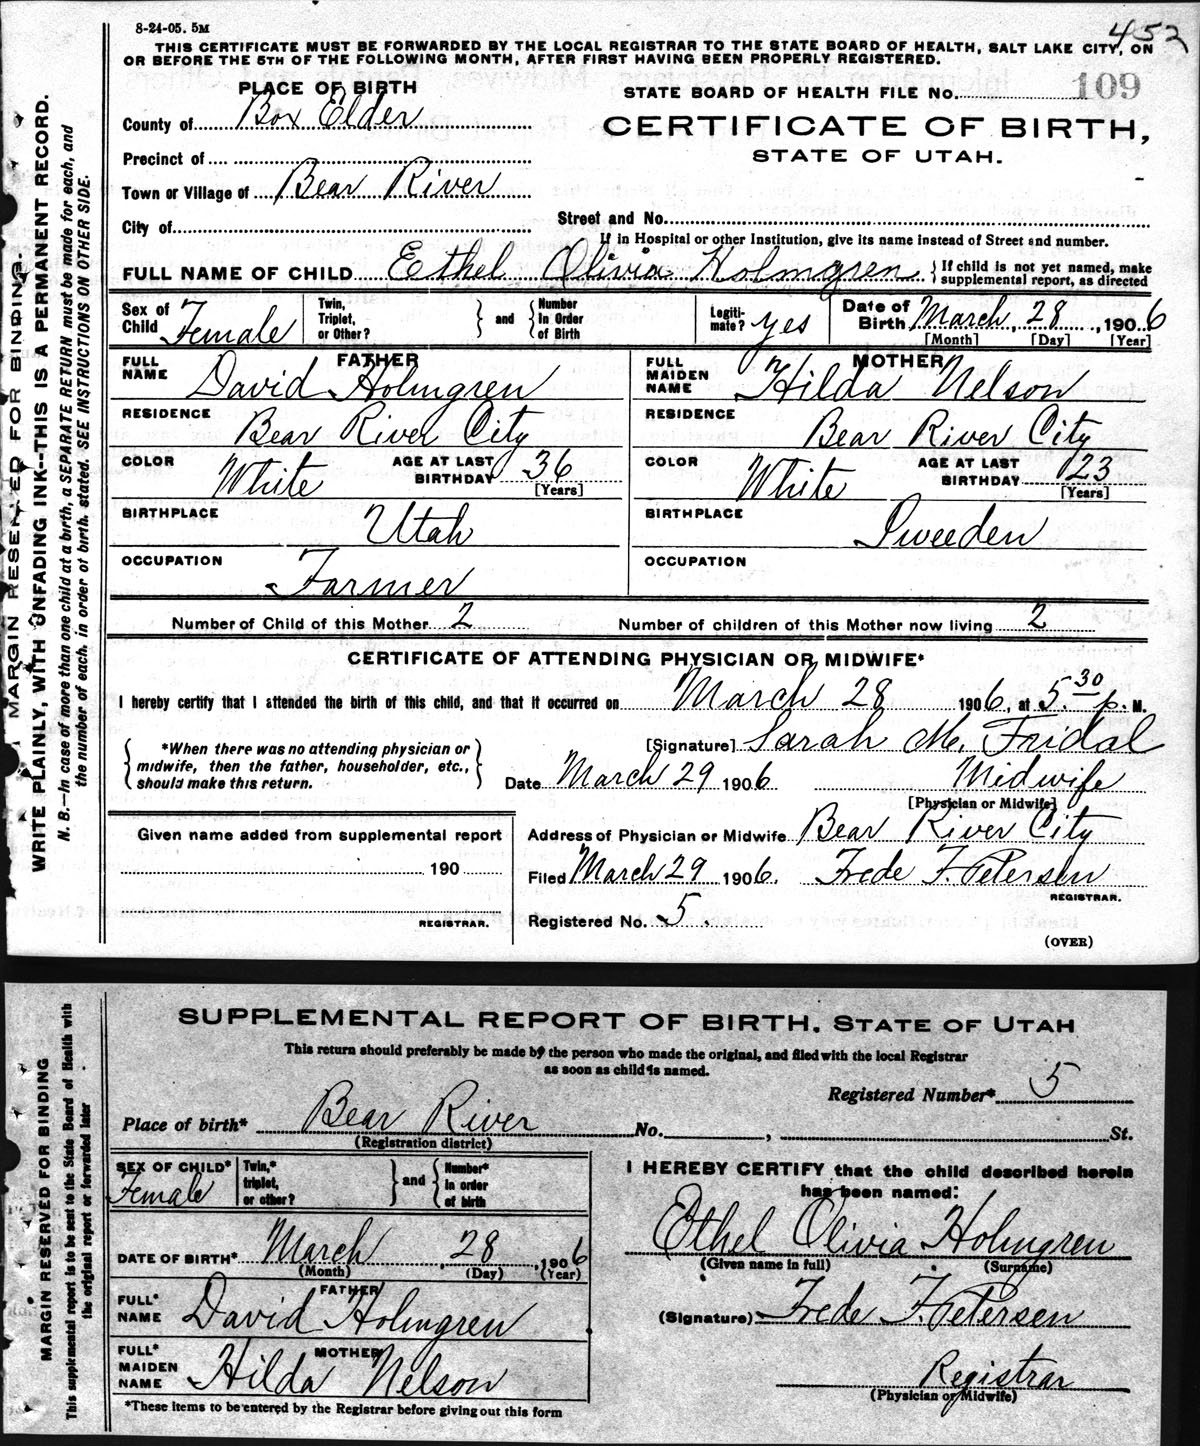 8-24-05. 5M
452
THIS CERTIFICATE MUST BE FORWARDED BY THE LOCAL REGISTRAR TO THE STATE BOARD OF HEALTH, SALT LAKE CITY, ON
OR BEFORE THE 5TH OF THE FOLLOWING MONTH, AFTER FIRST HAVING BEEN PROPERLY REGISTERED.
PLACE OF BIRTH
STATE BOARD OF HEALTH FILE No. 109
County of Box Elder
CERTIFICATE OF BIRTH,
STATE OF UTAH.
Precinct of
Town or Village of Bear River
City of
Street and No.
If in Hospital or other Institution, give its name instead of Street and number.
FULL NAME OF CHILD Ethel Olivia Holmgren } If child is not yet named, make supplemental report, as directed
Sex of Child Female Twin, Triplet, or Other? } and { Number In Order of Birth Legiti-mate? yes Date of Birth March, 28, 1906
[Month] [Day] [Year]
FATHER
FULL NAME David Holmgren
MOTHER
FULL MAIDEN NAME Hilda Nelson
RESIDENCE Bear River City
RESIDENCE Bear River City
COLOR White AGE AT LAST BIRTHDAY 36 [Years]
COLOR White AGE AT LAST BIRTHDAY 23 [Years]
BIRTHPLACE Utah
BIRTHPLACE Sweeden
OCCUPATION Farmer
OCCUPATION
Number of Child of this Mother 2 Number of children of this Mother now living 2
CERTIFICATE OF ATTENDING PHYSICIAN OR MIDWIFE*
I hereby certify that I attended the birth of this child, and that it occurred on March 28 1906, at 5.30 p. M.
{ *When there was no attending physician or midwife, then the father, householder, etc., should make this return. }
[Signature] Sarah M. Fridal
Date March 29 1906 Midwife
[Physician or Midwife]
Given name added from supplemental report
190
REGISTRAR.
Address of Physician or Midwife Bear River City
Filed March 29 1906. Frede F. Petersen
REGISTRAR.
Registered No. 5.
(OVER)
MARGIN RESERVED FOR BINDING.
WRITE PLAINLY, WITH UNFADING INK--THIS IS A PERMANENT RECORD.
N. B.—In case of more than one child at a birth, a SEPARATE RETURN must be made for each, and
the number of each, in order of birth, stated. SEE INSTRUCTIONS ON OTHER SIDE.
SUPPLEMENTAL REPORT OF BIRTH. STATE OF UTAH
This return should preferably be made by the person who made the original, and filed with the local Registrar
as soon as child is named.
Registered Number* 5
Place of birth* Bear River No. , St.
(Registration district)
SEX OF CHILD* Female Twin,* triplet, or other? } and { Number* In order of birth
DATE OF BIRTH* March 28, 1906
(Month) (Day) (Year)
FATHER
FULL* NAME David Holmgren
MOTHER
FULL* MAIDEN NAME Hilda Nelson
*These items to be entered by the Registrar before giving out this form
I HEREBY CERTIFY that the child described herein
has been named:
Ethel Olivia Holmgren
(Given name in full) (Surname)
(Signature) Frede F. Petersen
Registrar
(Physician or Midwife)
MARGIN RESERVED FOR BINDING
This supplemental report is to be sent to the State Board of Health with
the original report or forwarded later